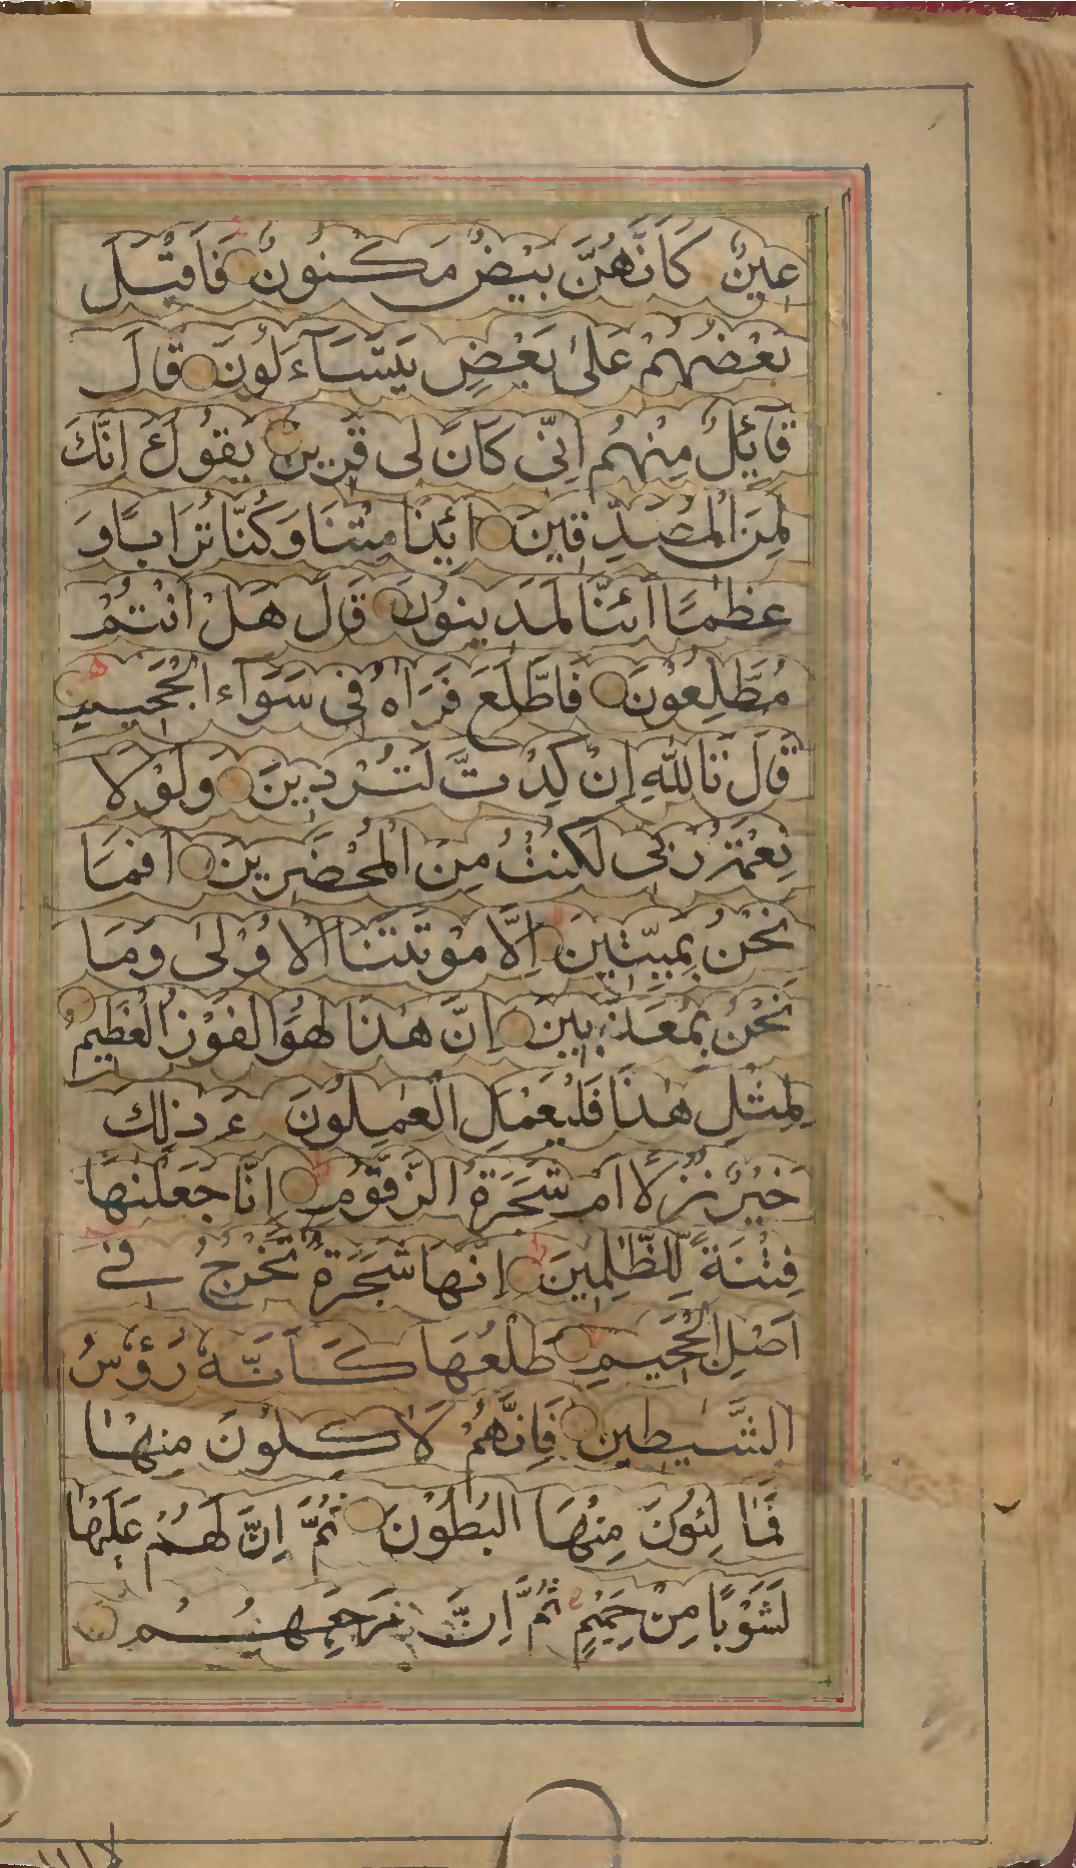 عِيْنٌ كَاَنَّهُنَّ بَيْضٌ مَكْنُونٌ فَاَقْبَلَ
بَعْضُهُمْ عَلٰى بَعْضٍ يَتَسَآءَلُونَ قَالَ
قَآئِلٌ مِنْهُمْ اِنِّى كَانَ لِى قَرِينٌ يَقُولُ ءَاِنَّكَ
لَمِنَ الْمُصَدِّقِينَ اَئِذَا مِتْنَا وَكُنَّا تُرَابًا وَ
عِظٰمًا اَئِنَّا لَمَدِينُونَ قَالَ هَلْ اَنْتُمْ
مُطَّلِعُونَ فَاطَّلَعَ فَرَاٰهُ فِى سَوَآءِ الْجَحِيمِ
قَالَ تَاللّٰهِ اِنْ كِدْتَّ لَتُرْدِينَ وَلَوْلَا
نِعْمَةُ رَبِّى لَكُنْتُ مِنَ الْمُحْضَرِينَ اَفَمَا
نَحْنُ بِمَيِّتِينَ اِلَّا مَوْتَتَنَا الْاُوْلٰى وَمَا
نَحْنُ بِمُعَذَّبِينَ اِنَّ هٰذَا لَهُوَ الْفَوْزُ الْعَظِيمُ
لِمِثْلِ هٰذَا فَلْيَعْمَلِ الْعٰمِلُونَ ءَ ذٰلِكَ
خَيْرٌ نُزُلًا اَمْ شَجَرَةُ الزَّقُّومِ اِنَّا جَعَلْنٰهَا
فِتْنَةً لِلظّٰلِمِينَ اِنَّهَا شَجَرَةٌ تَخْرُجُ فِى
اَصْلِ الْجَحِيمِ طَلْعُهَا كَاَنَّهُ رُؤُسُ
الشَّيٰطِينِ فَاِنَّهُمْ لَاٰكِلُونَ مِنْهَا
فَمَالِئُونَ مِنْهَا الْبُطُوْنَ ثُمَّ اِنَّ لَهُمْ عَلَيْهَا
لَشَوْبًا مِنْ حَمِيْمٍ ثُمَّ اِنَّ مَرْجِعَهُمْ